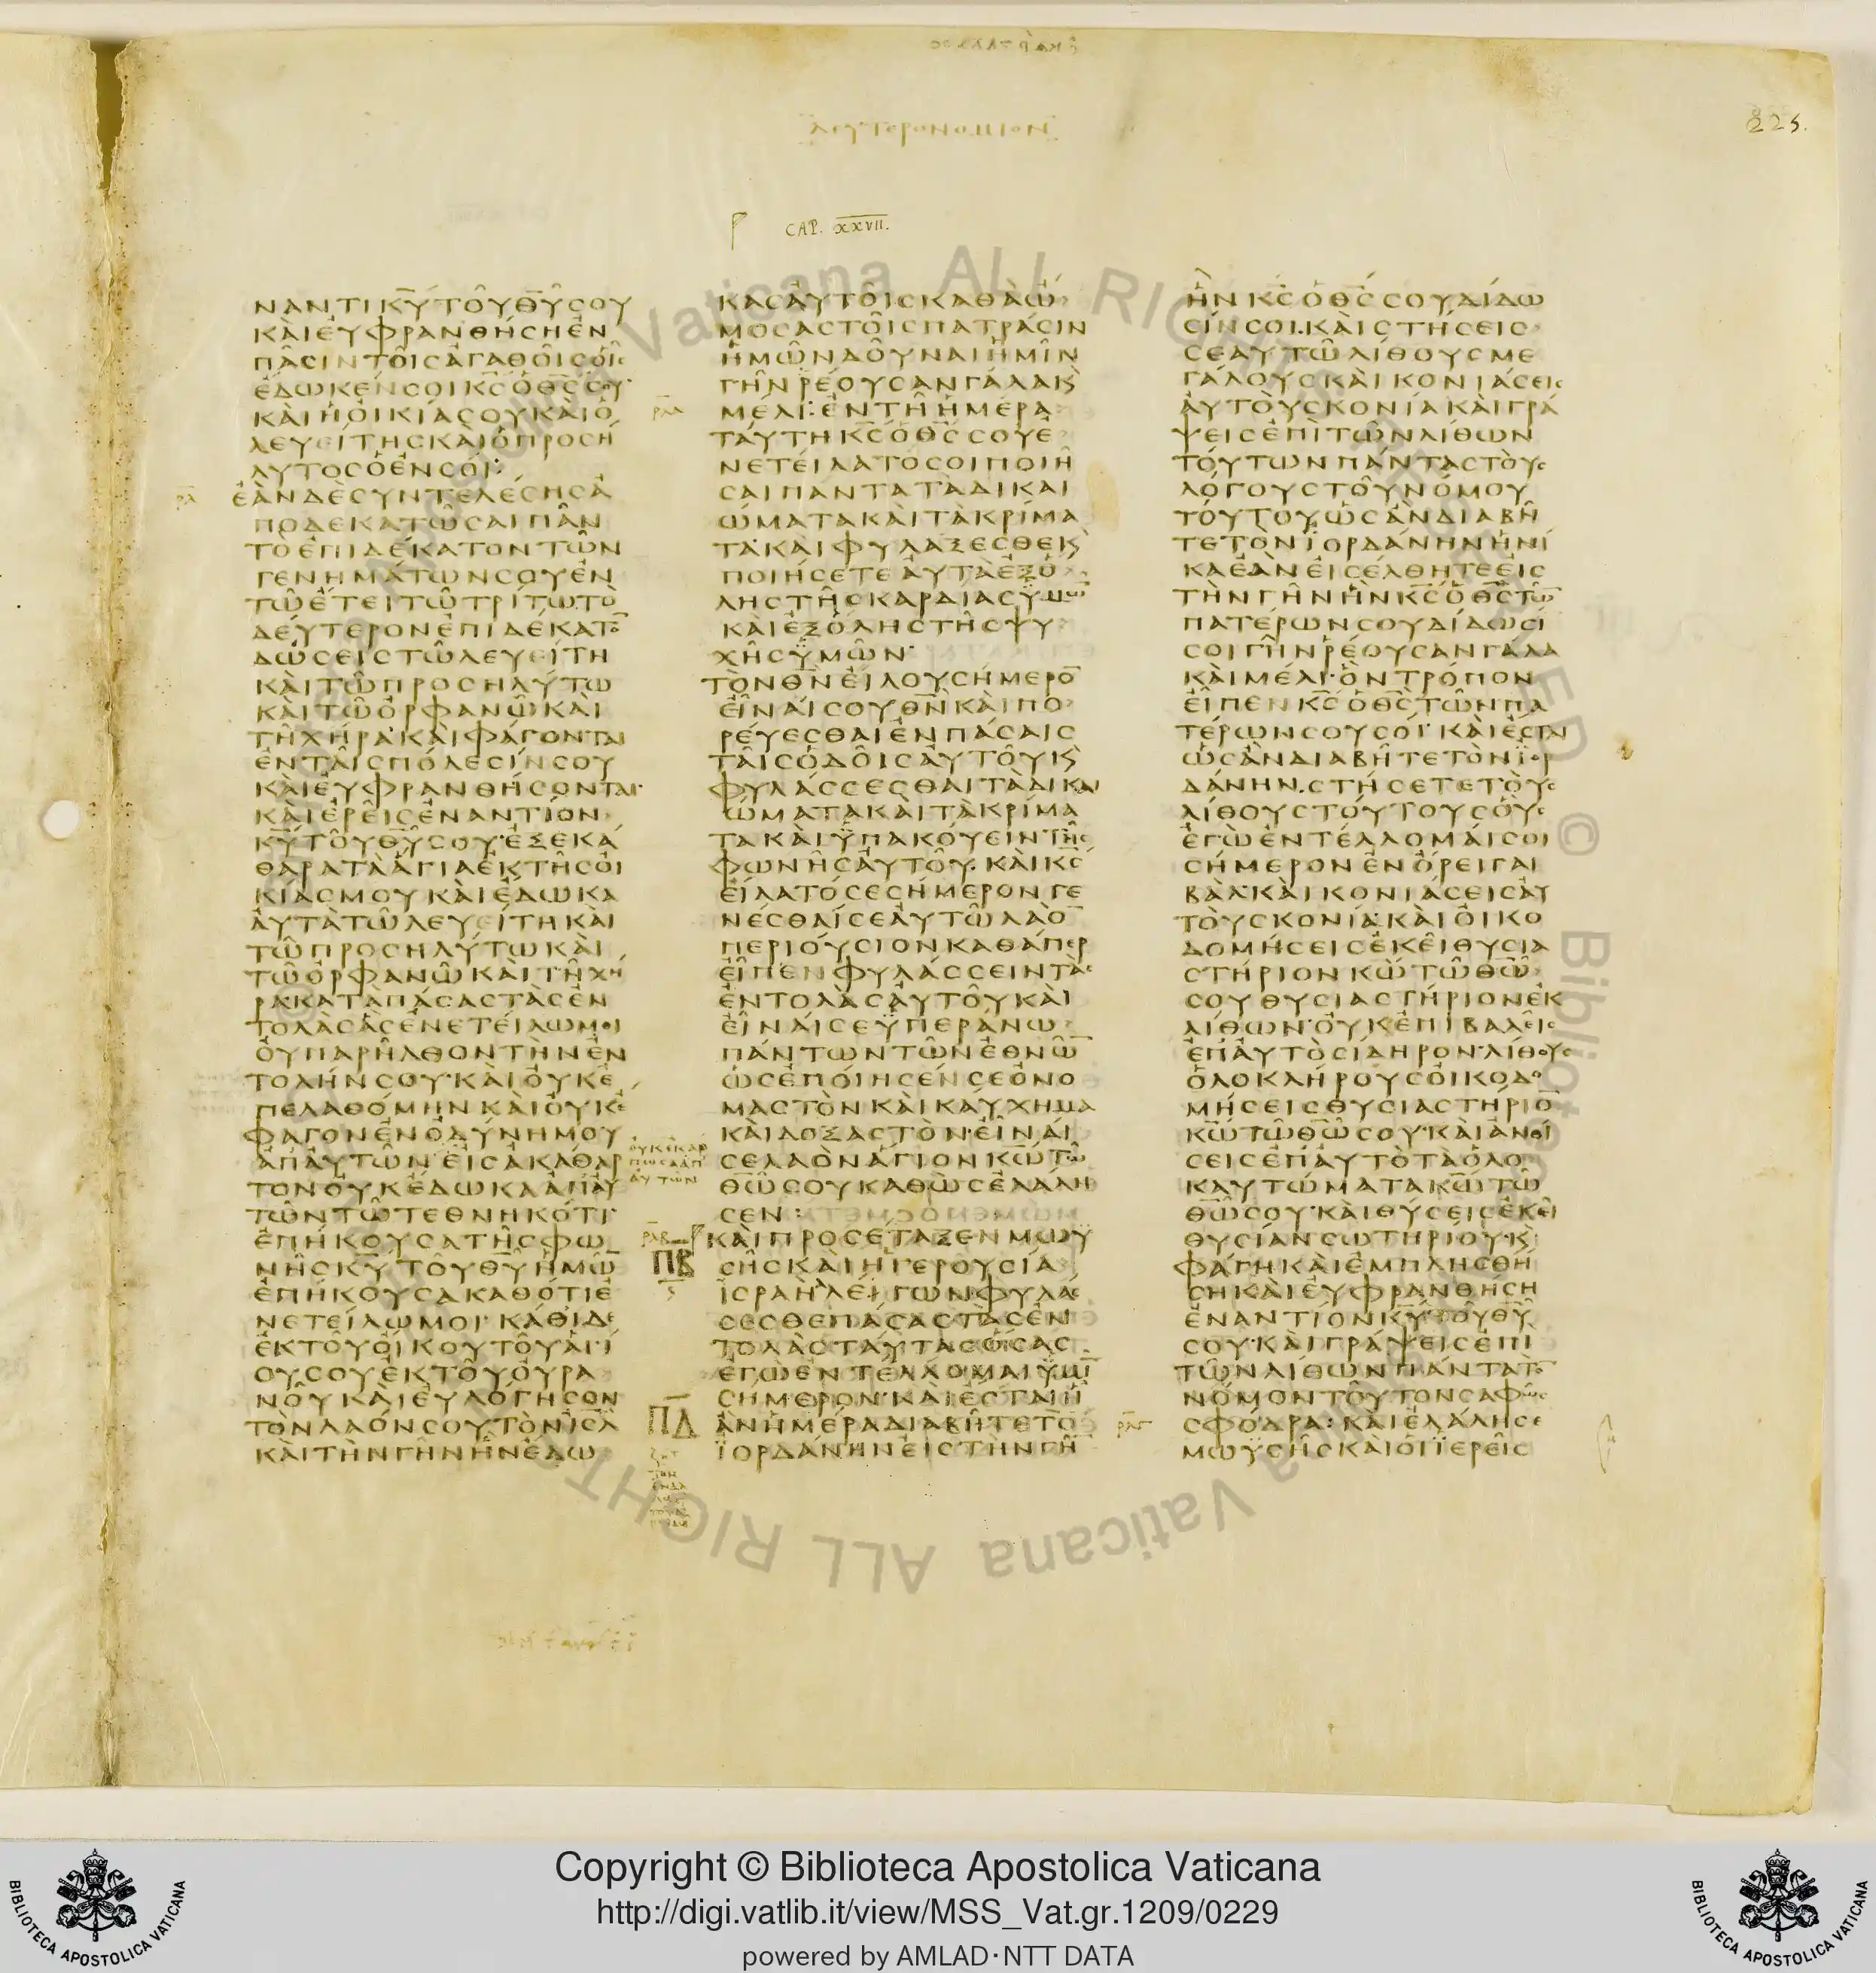 ΔΕΥΤΕΡΟΝΟΜΙΟΝ
225.
CAP. XXVII.
ΝΑΝΤΙΚΥΤΟΥΘΥΣΟΥ
ΚΑΙΕΥΦΡΑΝΘΗΣΗΕΝ
ΠΑΣΙΝΤΟΙΣΑΓΑΘΟΙΣΟΙΣ
ΕΔΩΚΕΝΣΟΙΚΣΟΘΣΣΟΥ·
ΚΑΙΗΟΙΚΙΑΣΟΥΚΑΙΟ
ΛΕΥΕΙΤΗΣΚΑΙΟΠΡΟΣΗ
ΛΥΤΟΣΟΕΝΣΟΙ:
ΕΑΝΔΕΣΥΝΤΕΛΕΣΗΣΑ
ΠΟΔΕΚΑΤΩΣΑΙΠΑΝ
ΤΟΕΠΙΔΕΚΑΤΟΝΤΩΝ
ΓΕΝΗΜΑΤΩΝΣΟΥΕΝ
ΤΩΕΤΕΙΤΩΤΡΙΤΩΤΟ
ΔΕΥΤΕΡΟΝΕΠΙΔΕΚΑΤΟ̅
ΔΩΣΕΙΣΤΩΛΕΥΕΙΤΗ
ΚΑΙΤΩΠΡΟΣΗΛΥΤΩ
ΚΑΙΤΩΟΡΦΑΝΩΚΑΙ
ΤΗΧΗΡΑ·ΚΑΙΦΑΓΟΝΤΑΙ
ΕΝΤΑΙΣΠΟΛΕΣΙΝΣΟΥ
ΚΑΙΕΥΦΡΑΝΘΗΣΟΝΤΑΙ·
ΚΑΙΕΡΕΙΣΕΝΑΝΤΙΟΝ
ΚΥΤΟΥΘΥΣΟΥ·ΕΞΕΚΑ
ΘΑΡΑΤΑΑΓΙΑΕΚΤΗΣΟΙ
ΚΙΑΣΜΟΥΚΑΙΕΔΩΚΑ
ΑΥΤΑΤΩΛΕΥΕΙΤΗΚΑΙ
ΤΩΠΡΟΣΗΛΥΤΩΚΑΙ
ΤΩΟΡΦΑΝΩΚΑΙΤΗΧΗ
ΡΑ·ΚΑΤΑΠΑΣΑΣΤΑΣΕΝ
ΤΟΛΑΣΑΣΕΝΕΤΕΙΛΩΜΟΙ
ΟΥΠΑΡΗΛΘΟΝΤΗΝΕΝ
ΤΟΛΗΝΣΟΥ·ΚΑΙΟΥΚΕ
ΠΕΛΑΘΟΜΗΝΚΑΙΟΥΚΕ
ΦΑΓΟΝΕΝΟΔΥΝΗΜΟΥ
ΑΠΑΥΤΩΝ ΕΙΣΑΚΑΘΑΡ
ΤΟΝΟΥΚΕΔΩΚΑΑΠΑΥ
ΤΩΝΤΩΤΕΘΝΗΚΟΤΙ·
ΕΠΗΚΟΥΣΑΤΗΣΦΩ
ΝΗΣΚΥΤΟΥΘΥΗΜΩ̅
ΕΠΗΚΟΥΣΑΚΑΘΟΤΙΕ
ΝΕΤΕΙΛΩΜΟΙ·ΚΑΘΙΔΕ
ΕΚΤΟΥΟΙΚΟΥΤΟΥΑΓΙ
ΟΥΣΟΥΕΚΤΟΥΟΥΡΑ
ΝΟΥΚΑΙΕΥΛΟΓΗΣΟΝ
ΤΟΝΛΑΟΝΣΟΥΤΟΝΙΣΛ
ΚΑΙΤΗΝΓΗΝΗΝΕΔΩ
ΟΥΚΕΚΑΡ
ΠΩΣΑΑΠ
ΑΥΤΩΝ
ΚΑΣΑΥΤΟΙΣΚΑΘΑΩ
ΜΟΣΑΣΤΟΙΣΠΑΤΡΑΣΙΝ
ΗΜΩΝΔΟΥΝΑΙΗΜΙΝ
ΓΗΝΡΕΟΥΣΑΝΓΑΛΑΚϏ
ΜΕΛΙ:ΕΝΤΗΗΜΕΡΑ
ΤΑΥΤΗΚΣΟΘΣΣΟΥΕ
ΝΕΤΕΙΛΑΤΟΣΟΙΠΟΙΗ
ΣΑΙΠΑΝΤΑΤΑΔΙΚΑΙ
ΩΜΑΤΑΚΑΙΤΑΚΡΙΜΑ
ΤΑ·ΚΑΙΦΥΛΑΞΕΣΘΕΚϏ
ΠΟΙΗΣΕΤΕΑΥΤΑΕΞΟ
ΛΗΣΤΗΣΚΑΡΔΙΑΣΥΜΩ̅
ΚΑΙΕΞΟΛΗΣΤΗΣΨΥ
ΧΗΣΥΜΩΝ·
ΤΟΝΘΝΕΙΛΟΥΣΗΜΕΡΟ̅
ΕΙΝΑΙΣΟΥΘΝΚΑΙΠΟ
ΡΕΥΕΣΘΑΙΕΝΠΑΣΑΙΣ
ΤΑΙΣΟΔΟΙΣΑΥΤΟΥΚϏ
ΦΥΛΑΣΣΕΣΘΑΙΤΑΔΙΚΑΙ
ΩΜΑΤΑΚΑΙΤΑΚΡΙΜΑ
ΤΑΚΑΙΥΠΑΚΟΥΕΙΝΤΗΣ
ΦΩΝΗΣΑΥΤΟΥ·ΚΑΙΚΣ
ΕΙΛΑΤΟΣΕΣΗΜΕΡΟΝΓΕ
ΝΕΣΘΑΙΣΕΑΥΤΩΛΑΟ̅
ΠΕΡΙΟΥΣΙΟΝΚΑΘΑΠΕΡ
ΕΙΠΕΝΦΥΛΑΣΣΕΙΝΤΑΣ
ΕΝΤΟΛΑΣΑΥΤΟΥΚΑΙ
ΕΙΝΑΙΣΕΥΠΕΡΑΝΩ
ΠΑΝΤΩΝΤΩΝΕΘΝΩ̅
ΩΣΕΠΟΙΗΣΕΝΣΕΟΝΟ
ΜΑΣΤΟΝΚΑΙΚΑΥΧΗΜΑ
ΚΑΙΔΟΞΑΣΤΟΝ·ΕΙΝΑΙ
ΣΕΛΑΟΝΑΓΙΟΝΚΩΤΩ
ΘΩΣΟΥΚΑΘΩΣΕΛΑΛΗ
ΣΕΝ:
ΚΑΙΠΡΟΣΕΤΑΞΕΝΜΩΥ
ΣΗΣΚΑΙΗΓΕΡΟΥΣΙΑ
ΙΣΡΑΗΛΛΕΓΩΝΦΥΛΑΣ
ΣΕΣΘΕΠΑΣΑΣΤΑΣΕΝ
ΤΟΛΑΣΤΑΥΤΑΣΟΣΑΣ
ΕΓΩΕΝΤΕΛΛΟΜΑΙΥΜΙ̅
ΣΗΜΕΡΟΝ·ΚΑΙΕΣΤΑΙΗ
ΑΝΗΜΕΡΑΔΙΑΒΗΤΕΤΟ̅
ΙΟΡΔΑΝΗΝΕΙΣΤΗΝΓΗ̅
ΠΒ
ΠΔ
ΗΝΚΣΟΘΣΣΟΥΔΙΔΩ
ΣΙΝΣΟΙ·ΚΑΙΣΤΗΣΕΙΣ
ΣΕΑΥΤΩΛΙΘΟΥΣΜΕ
ΓΑΛΟΥΣΚΑΙΚΟΝΙΑΣΕΙΣ
ΑΥΤΟΥΣΚΟΝΙΑΚΑΙΓΡΑ
ΨΕΙΣΕΠΙΤΩΝΛΙΘΩΝ
ΤΟΥΤΩΝΠΑΝΤΑΣΤΟΥΣ
ΛΟΓΟΥΣΤΟΥΝΟΜΟΥ
ΤΟΥΤΟΥΩΣΑΝΔΙΑΒΗ
ΤΕΤΟΝΙΟΡΔΑΝΗΝΗΝΙ
ΚΑΕΑΝΕΙΣΕΛΘΗΤΕΕΙΣ
ΤΗΝΓΗΝΗΝΚΣΟΘΣΤΩ̅
ΠΑΤΕΡΩΝΣΟΥΔΙΔΩΣΙ
ΣΟΙΓΗΝΡΕΟΥΣΑΝΓΑΛΑ
ΚΑΙΜΕΛΙ·ΟΝΤΡΟΠΟΝ
ΕΙΠΕΝΚΣΟΘΣΤΩΝΠΑ
ΤΕΡΩΝΣΟΥΣΟΙ·ΚΑΙΕΣΤΑΙ
ΩΣΑΝΔΙΑΒΗΤΕΤΟΝΙΟΡ
ΔΑΝΗΝ·ΣΤΗΣΕΤΕΤΟΥΣ
ΛΙΘΟΥΣΤΟΥΤΟΥΣΟΥΣ
ΕΓΩΕΝΤΕΛΛΟΜΑΙΣΟΙ
ΣΗΜΕΡΟΝΕΝΟΡΕΙΓΑΙ
ΒΑΛ·ΚΑΙΚΟΝΙΑΣΕΙΣΑΥ
ΤΟΥΣΚΟΝΙΑ·ΚΑΙΟΙΚΟ
ΔΟΜΗΣΕΙΣΕΚΕΙΘΥΣΙΑ
ΣΤΗΡΙΟΝΚΩΤΩΘΩ
ΣΟΥΘΥΣΙΑΣΤΗΡΙΟΝΕΚ
ΛΙΘΩΝ·ΟΥΚΕΠΙΒΑΛΕΙΣ
ΕΠΑΥΤΟΣΙΔΗΡΟΝ·ΛΙΘΟΥΣ
ΟΛΟΚΛΗΡΟΥΣΟΙΚΟΔΟ
ΜΗΣΕΙΣΘΥΣΙΑΣΤΗΡΙΟ̅
ΚΩΤΩΘΩΣΟΥ·ΚΑΙΑΝΟΙ
ΣΕΙΣΕΠΑΥΤΟΤΑΟΛΟ
ΚΑΥΤΩΜΑΤΑΚΩΤΩ
ΘΩΣΟΥ·ΚΑΙΘΥΣΕΙΣΕΚΕΙ
ΘΥΣΙΑΝΣΩΤΗΡΙΟΥ·ΚϏ
ΦΑΓΗΚΑΙΕΜΠΛΗΣΘΗ
ΣΗΚΑΙΕΥΦΡΑΝΘΗΣΗ
ΕΝΑΝΤΙΟΝΚΥΤΟΥΘΥ
ΣΟΥ·ΚΑΙΓΡΑΨΕΙΣΕΠΙ
ΤΩΝΛΙΘΩΝΠΑΝΤΑΤΟ̅
ΝΟΜΟΝΤΟΥΤΟΝΣΑΦΩΣ
ΣΦΟΔΡΑ:ΚΑΙΕΛΑΛΗΣΕ
ΜΩΥΣΗΣΚΑΙΟΙΙΕΡΕΙΣ
Copyright © Biblioteca Apostolica Vaticana
http://digi.vatlib.it/view/MSS_Vat.gr.1209/0229
powered by AMLAD·NTT DATA
BIBLIOTECA APOSTOLICA VATICANA
BIBLIOTECA APOSTOLICA VATICANA